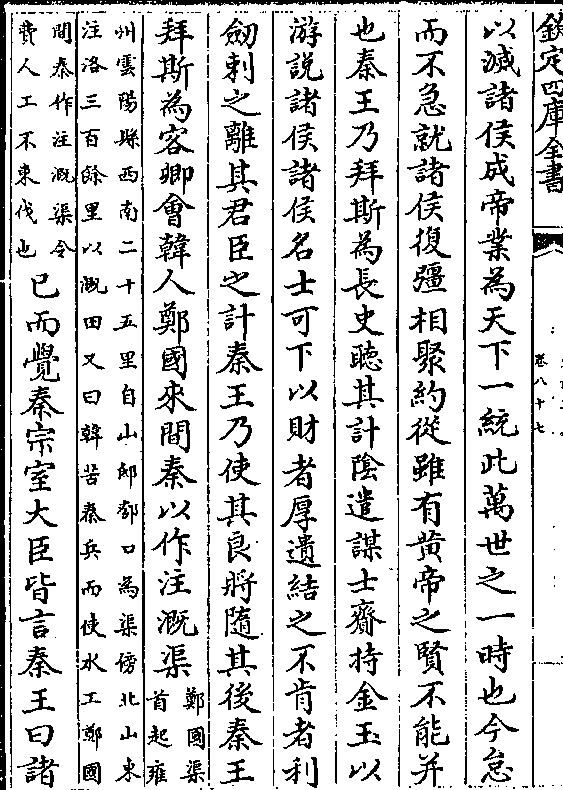 欽定四庫全書
卷八十七
以滅諸侯成帝業為天下一統此萬世之一時也今怠
而不急就諸侯復彊相聚約從雖有黄帝之賢不能并
也秦王乃拜斯為長史聽其計陰遣謀士齎持金玉以
游說諸侯諸侯名士可下以財者厚遺結之不肯者利
劒刺之離其君臣之計秦王乃使其良將隨其後秦王
拜斯為客卿會韓人鄭國來間秦以作注溉渠
鄭國渠
首起雍
州雲陽縣西南二十五里自山邸口為渠傍北山東
注洛三百餘里以溉田又曰韓苦秦兵而使水工鄭國
間秦作注溉渠令
費人工不東伐也
已而覺秦宗室大臣皆言秦王曰諸